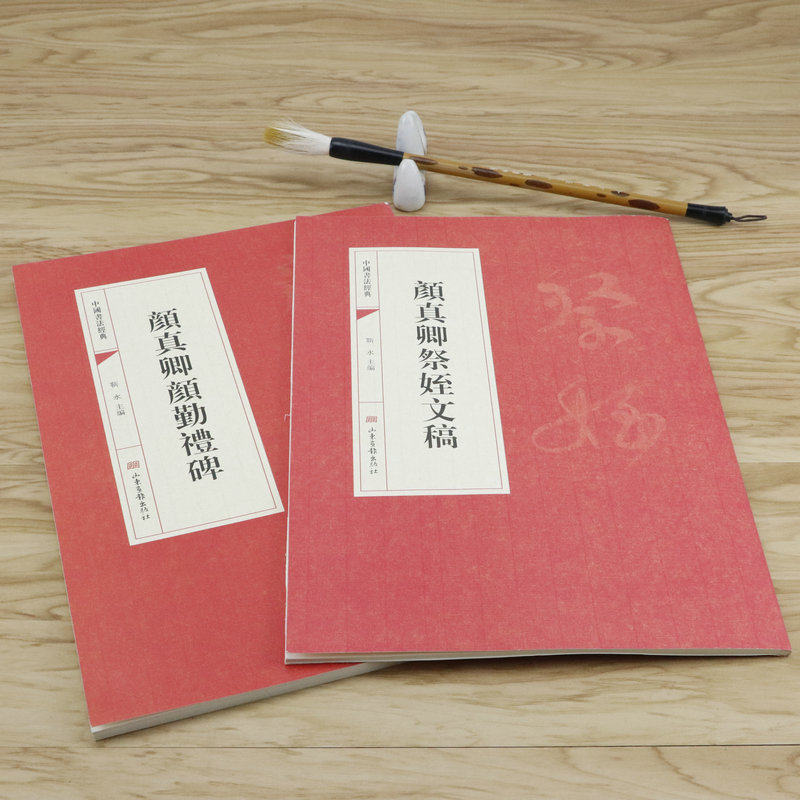 中國書法經典
顏真卿顏勤禮碑
靳 水 主編
山東畫報出版社
中國書法經典
顏真卿祭姪文稿
靳 水 主編
山東畫報出版社
祭
稿